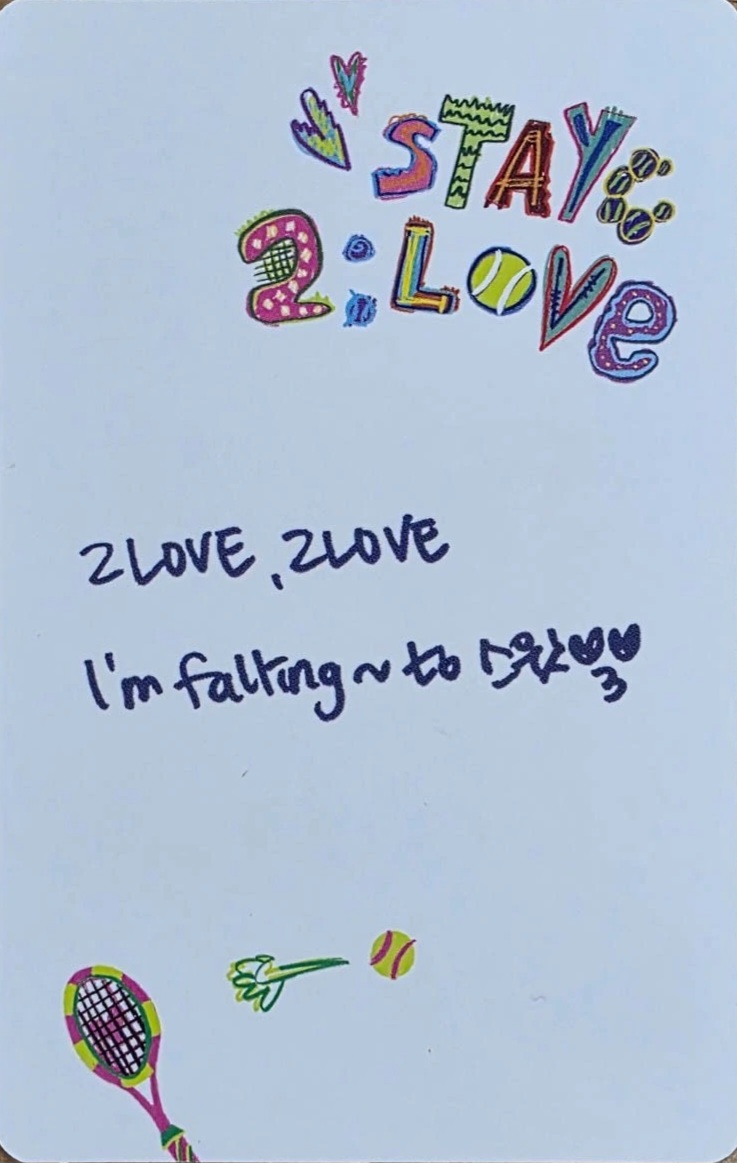 STAYC
2:LOVE
2LOVE, 2LOVE
I'm falling~to 스윗♥♥
3